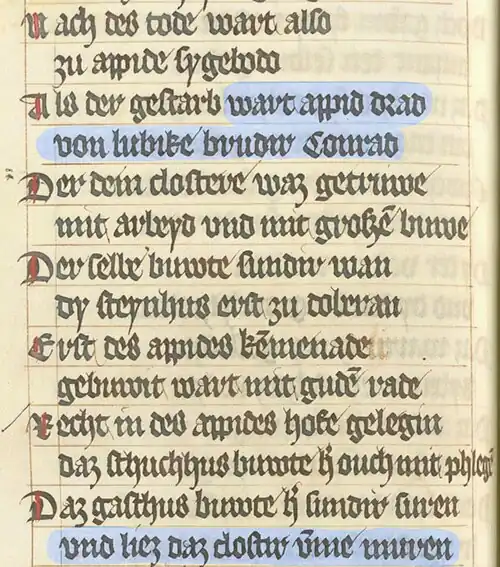 Nach des tode wart also
zu appide sygebodo
Als der gestarb wart appid drad
von lubike brudir Conrad
Der dem clostere waz getruwe
mit arbeyd vnd mit groszē buwe
Der selbe buwete sundir wan
dy steynhus erst zu doberan
Erst des appides kēmenade
gebuwit wart mit gudē rade
Recht in des appides hofe gelegin
daz schuchhus buwete h̄ ouch mit phlegē
Daz gasthus buwete h̄ sundir suren
vnd liez daz clostir v̄me muren